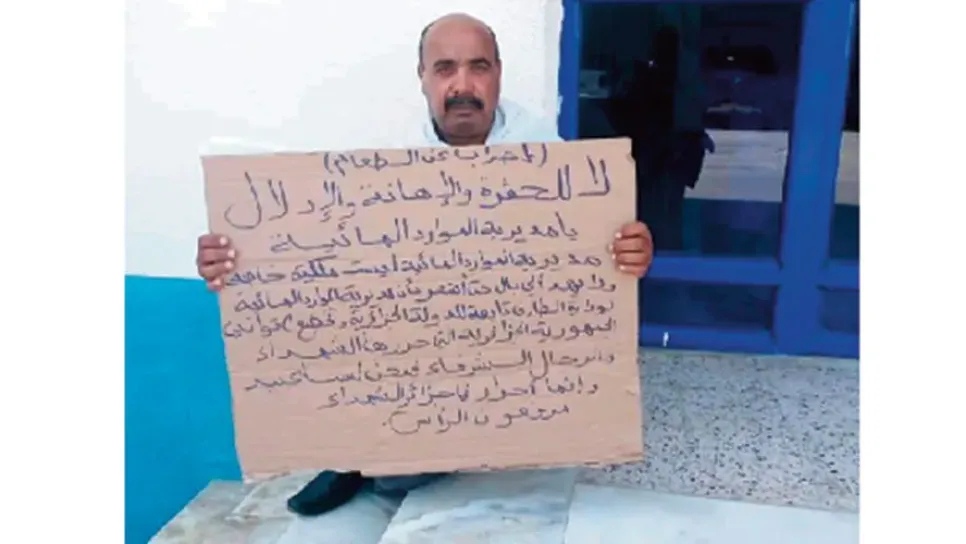 (إضراب عن الطعام)
لا للحقرة والإهانة والإذلال
يا مديرية الموارد المائية
مديرية الموارد المائية ليست ملكية خاصة
مديرية الموارد المائية
لولاية الطارف تابعة للدولة الجزائرية وتخضع لقوانين
الجمهورية الجزائرية التي حررها الشهداء
والرجال الشرفاء نحن لسنا عبيد
وإنما أحرار في جزائر الشهداء
مرفعون الرأس.